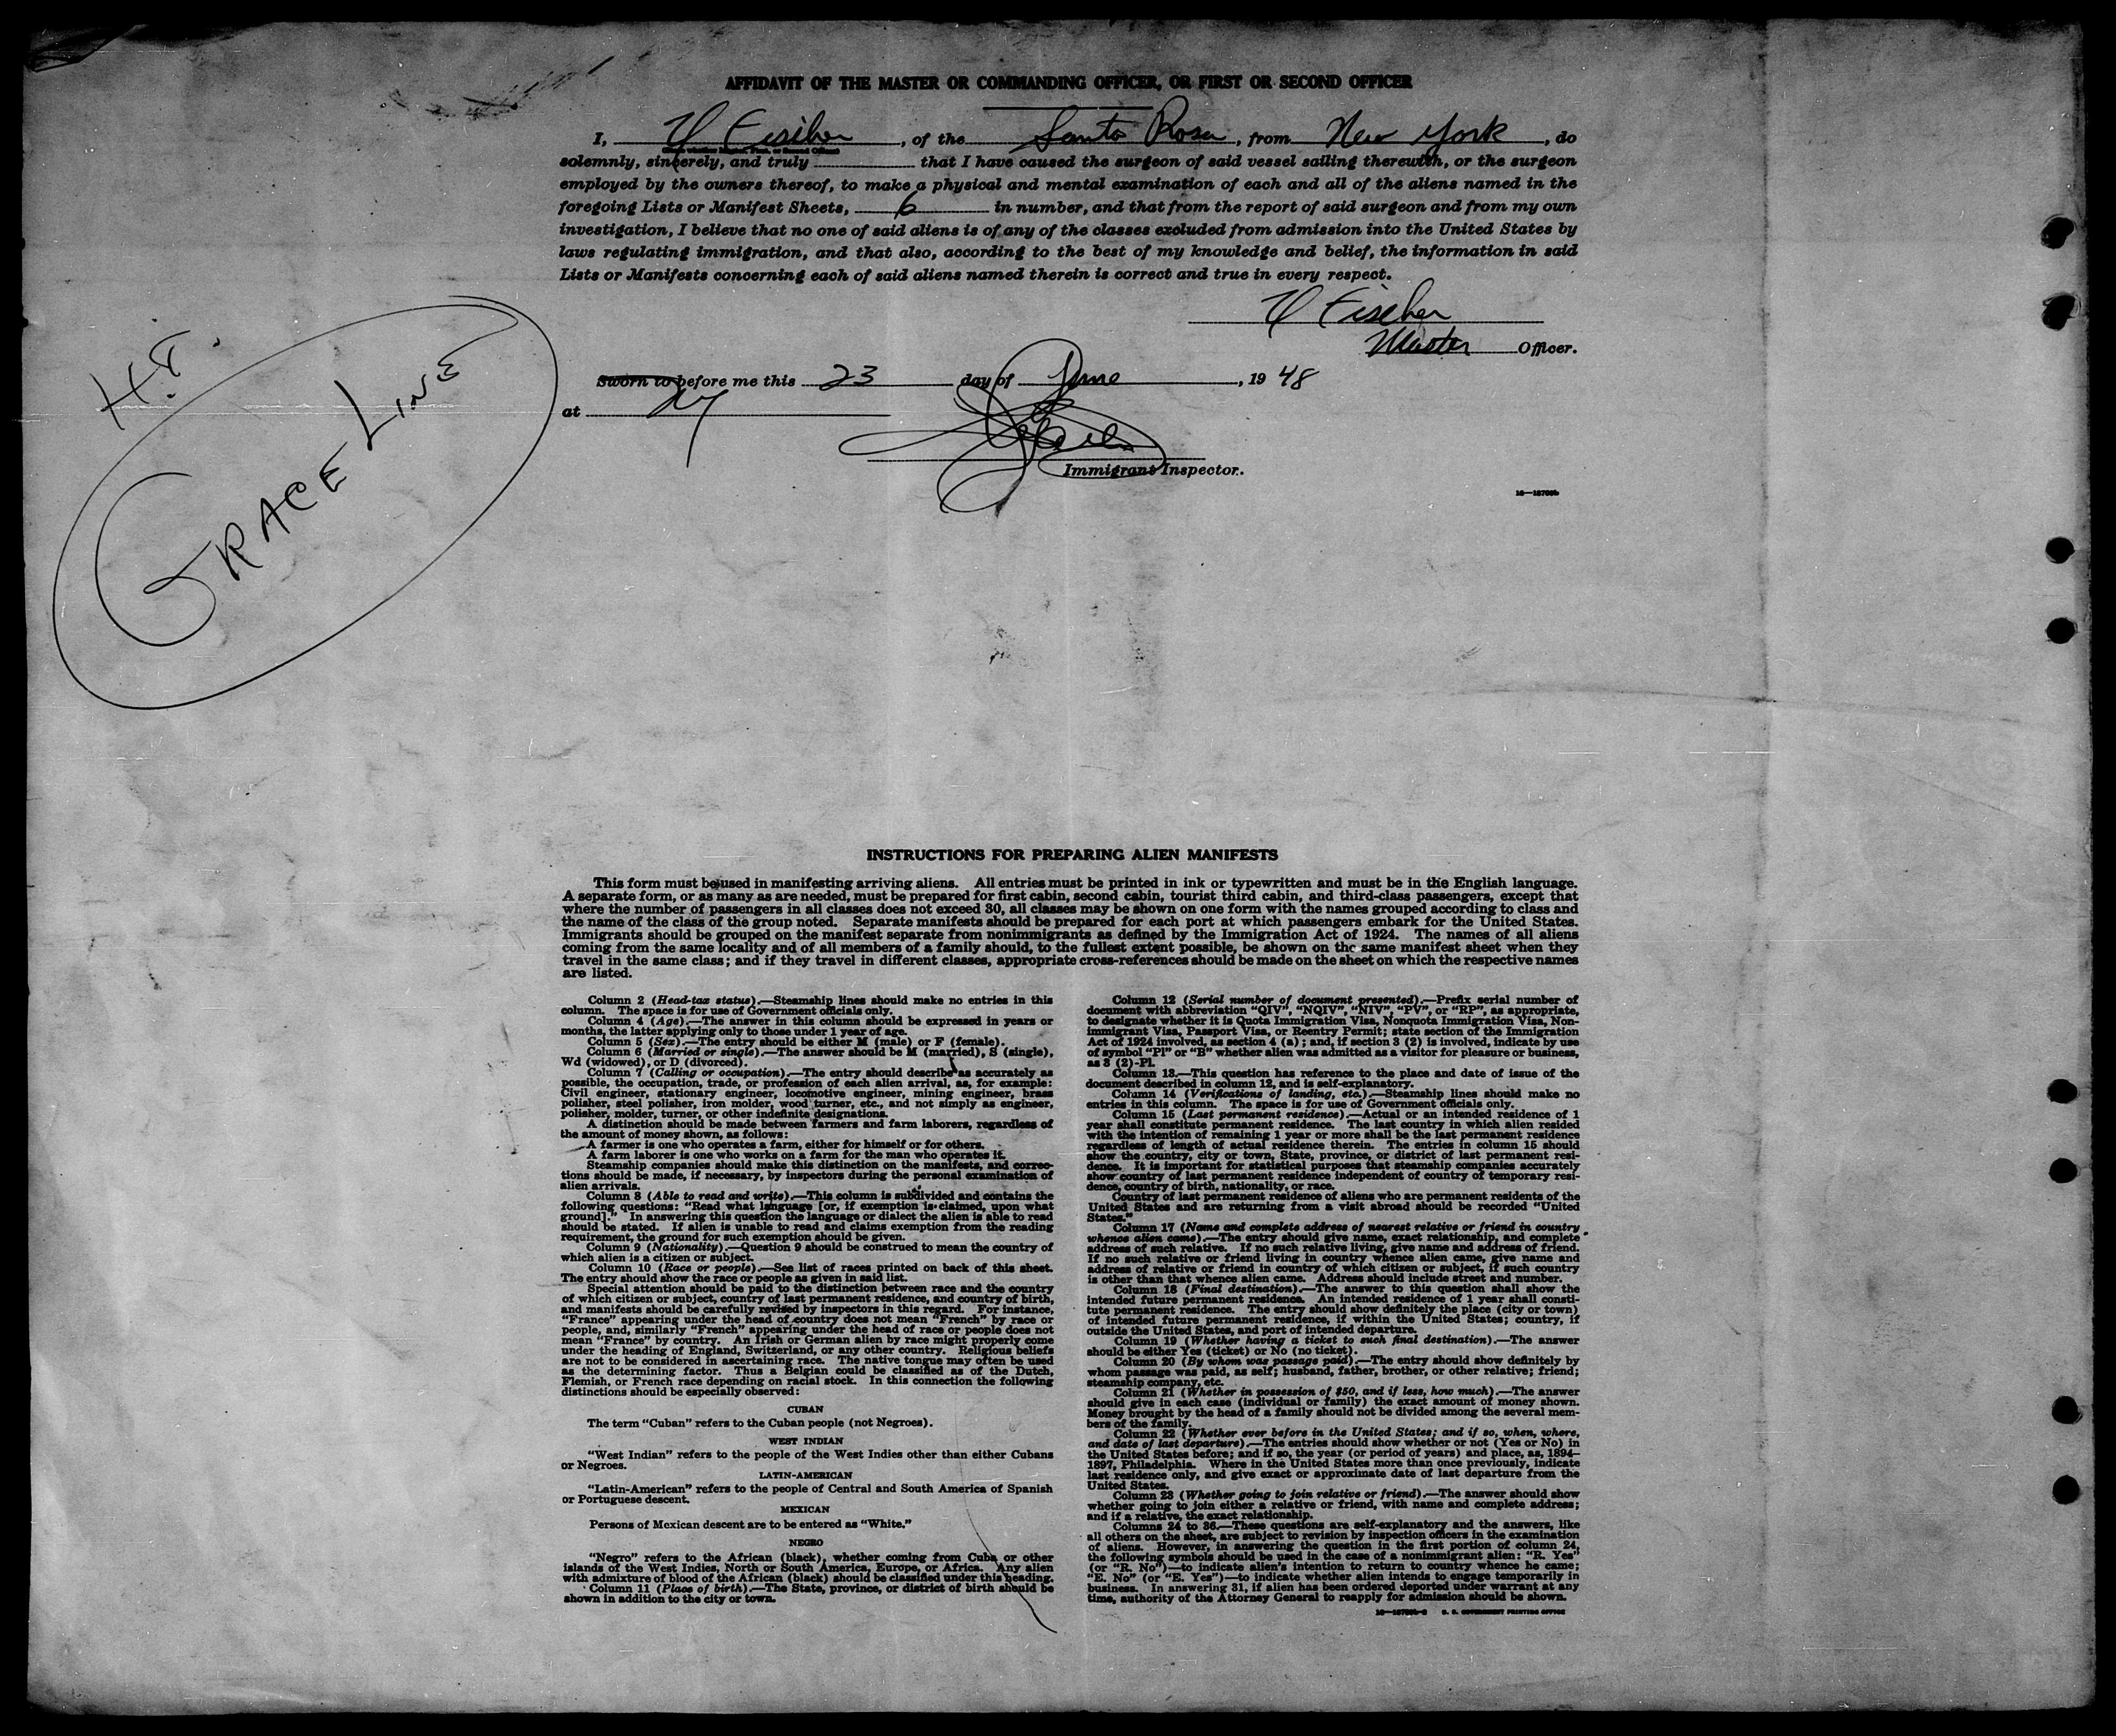 AFFIDAVIT OF THE MASTER OR COMMANDING OFFICER, OR FIRST OR SECOND OFFICER
I, Fischer, of the Santa Rosa, from New York, do
solemnly, sincerely, and truly that I have caused the surgeon of said vessel sailing therewith, or the surgeon
employed by the owners thereof, to make a physical and mental examination of each and all of the aliens named in the
foregoing Lists or Manifest Sheets, 6 in number, and that from the report of said surgeon and from my own
investigation, I believe that no one of said aliens is of any of the classes excluded from admission into the United States by
laws regulating immigration, and that also, according to the best of my knowledge and belief, the information in said
Lists or Manifests concerning each of said aliens named therein is correct and true in every respect.
Fischer
Master Officer.
Sworn to before me this 23 day of June, 1948
at NY
Immigrant Inspector.
H.T.
GRACE LINE
INSTRUCTIONS FOR PREPARING ALIEN MANIFESTS
This form must be used in manifesting arriving aliens. All entries must be printed in ink or typewritten and must be in the English language.
A separate form, or as many as are needed, must be prepared for first cabin, second cabin, tourist third cabin, and third-class passengers, except that
where the number of passengers in all classes does not exceed 30, all classes may be shown on one form with the names grouped according to class and
the name of the class of the group noted. Separate manifests should be prepared for each port at which passengers embark for the United States.
Immigrants should be grouped on the manifest separate from nonimmigrants as defined by the Immigration Act of 1924. The names of all aliens
coming from the same locality and of all members of a family should, to the fullest extent possible, be shown on the same manifest sheet when they
travel in the same class; and if they travel in different classes, appropriate cross-references should be made on the sheet on which the respective names
are listed.
Column 2 (Head-tax status).—Steamship lines should make no entries in this
column. The space is for use of Government officials only.
Column 4 (Age).—The answer in this column should be expressed in years or
months, the latter applying only to those under 1 year of age.
Column 5 (Sex).—The entry should be either M (male) or F (female).
Column 6 (Married or single).—The answer should be M (married), S (single),
Wd (widowed), or D (divorced).
Column 7 (Calling or occupation).—The entry should describe as accurately as
possible, the occupation, trade, or profession of each alien arrival, as, for example:
Civil engineer, stationary engineer, locomotive engineer, mining engineer, brass
polisher, steel polisher, iron molder, wood turner, etc., and not simply as engineer,
polisher, molder, turner, or other indefinite designations.
A distinction should be made between farmers and farm laborers, regardless of
the amount of money shown, as follows:
A farmer is one who operates a farm, either for himself or for others.
A farm laborer is one who works on a farm for the man who operates it.
Steamship companies should make this distinction on the manifests, and correc-
tions should be made, if necessary, by inspectors during the personal examination of
alien arrivals.
Column 8 (Able to read and write).—This column is subdivided and contains the
following questions: "Read what language [or, if exemption is claimed, upon what
ground]." In answering this question the language or dialect the alien is able to read
should be stated. If alien is unable to read and claims exemption from the reading
requirement, the ground for such exemption should be given.
Column 9 (Nationality).—Question 9 should be construed to mean the country of
which alien is a citizen or subject.
Column 10 (Race or people).—See list of races printed on back of this sheet.
The entry should show the race or people as given in said list.
Special attention should be paid to the distinction between race and the country
of which citizen or subject, country of last permanent residence, and country of birth,
and manifests should be carefully revised by inspectors in this regard. For instance,
"France" appearing under the head of country does not mean "French" by race or
people, and, similarly "French" appearing under the head of race or people does not
mean "France" by country. An Irish or German alien by race might properly come
under the heading of England, Switzerland, or any other country. Religious beliefs
are not to be considered in ascertaining race. The native tongue may often be used
as the determining factor. Thus a Belgian could be classified as of the Dutch,
Flemish, or French race depending on racial stock. In this connection the following
distinctions should be especially observed:
CUBAN
The term "Cuban" refers to the Cuban people (not Negroes).
WEST INDIAN
"West Indian" refers to the people of the West Indies other than either Cubans
or Negroes.
LATIN-AMERICAN
"Latin-American" refers to the people of Central and South America of Spanish
or Portuguese descent.
MEXICAN
Persons of Mexican descent are to be entered as "White."
NEGRO
"Negro" refers to the African (black), whether coming from Cuba or other
islands of the West Indies, North or South America, Europe, or Africa. Any alien
with admixture of blood of the African (black) should be classified under this heading.
Column 11 (Place of birth).—The State, province, or district of birth should be
shown in addition to the city or town.
Column 12 (Serial number of document presented).—Prefix serial number of
document with abbreviation "QIV", "NQIV", "NIV", "PV", or "RP", as appropriate,
to designate whether it is Quota Immigration Visa, Nonquota Immigration Visa, Non-
immigrant Visa, Passport Visa, or Reentry Permit; state section of the Immigration
Act of 1924 involved, as section 4 (a); and, if section 3 (2) is involved, indicate by use
of symbol "Pl" or "B" whether alien was admitted as a visitor for pleasure or business,
as 3 (2)-Pl.
Column 13.—This question has reference to the place and date of issue of the
document described in column 12, and is self-explanatory.
Column 14 (Verifications of landing, etc.).—Steamship lines should make no
entries in this column. The space is for use of Government officials only.
Column 15 (Last permanent residence).—Actual or an intended residence of 1
year shall constitute permanent residence. The last country in which alien resided
with the intention of remaining 1 year or more shall be the last permanent residence
regardless of length of actual residence therein. The entries in column 15 should
show the country, city or town, State, province, or district of last permanent resi-
dence. It is important for statistical purposes that steamship companies accurately
show country of last permanent residence independent of country of temporary resi-
dence, country of birth, nationality, or race.
Country of last permanent residence of aliens who are permanent residents of the
United States and are returning from a visit abroad should be recorded "United
States."
Column 17 (Name and complete address of nearest relative or friend in country
whence alien came).—The entry should give name, exact relationship, and complete
address of such relative. If no such relative living, give name and address of friend.
If no such relative or friend living in country whence alien came, give name and
address of relative or friend in country of which citizen or subject, if such country
is other than that whence alien came. Address should include street and number.
Column 18 (Final destination).—The answer to this question shall show the
intended future permanent residence. An intended residence of 1 year shall consti-
tute permanent residence. The entry should show definitely the place (city or town)
of intended future permanent residence, if within the United States; country, if
outside the United States, and port of intended departure.
Column 19 (Whether having a ticket to such final destination).—The answer
should be either Yes (ticket) or No (no ticket).
Column 20 (By whom was passage paid).—The entry should show definitely by
whom passage was paid, as self; husband, father, brother, or other relative; friend;
steamship company, etc.
Column 21 (Whether in possession of $50, and if less, how much).—The answer
should give in each case (individual or family) the exact amount of money shown.
Money brought by the head of a family should not be divided among the several mem-
bers of the family.
Column 22 (Whether ever before in the United States; and if so, when, where,
and date of last departure).—The entries should show whether or not (Yes or No) in
the United States before; and if so, the year (or period of years) and place, as, 1894–
1897, Philadelphia. Where in the United States more than once previously, indicate
last residence only, and give exact or approximate date of last departure from the
United States.
Column 23 (Whether going to join relative or friend).—The answer should show
whether going to join either a relative or friend, with name and complete address;
and if a relative, the exact relationship.
Columns 24 to 36.—These questions are self-explanatory and the answers, like
all others on the sheet, are subject to revision by inspection officers in the examination
of aliens. However, in answering the question in the first portion of column 24,
the following symbols should be used in the case of a nonimmigrant alien: "R. Yes"
(or "R. No")—to indicate alien's intention to return to country whence he came;
"E. No" (or "E. Yes")—to indicate whether alien intends to engage temporarily in
business. In answering 31, if alien has been ordered deported under warrant at any
time, authority of the Attorney General to reapply for admission should be shown.
U. S. GOVERNMENT PRINTING OFFICE